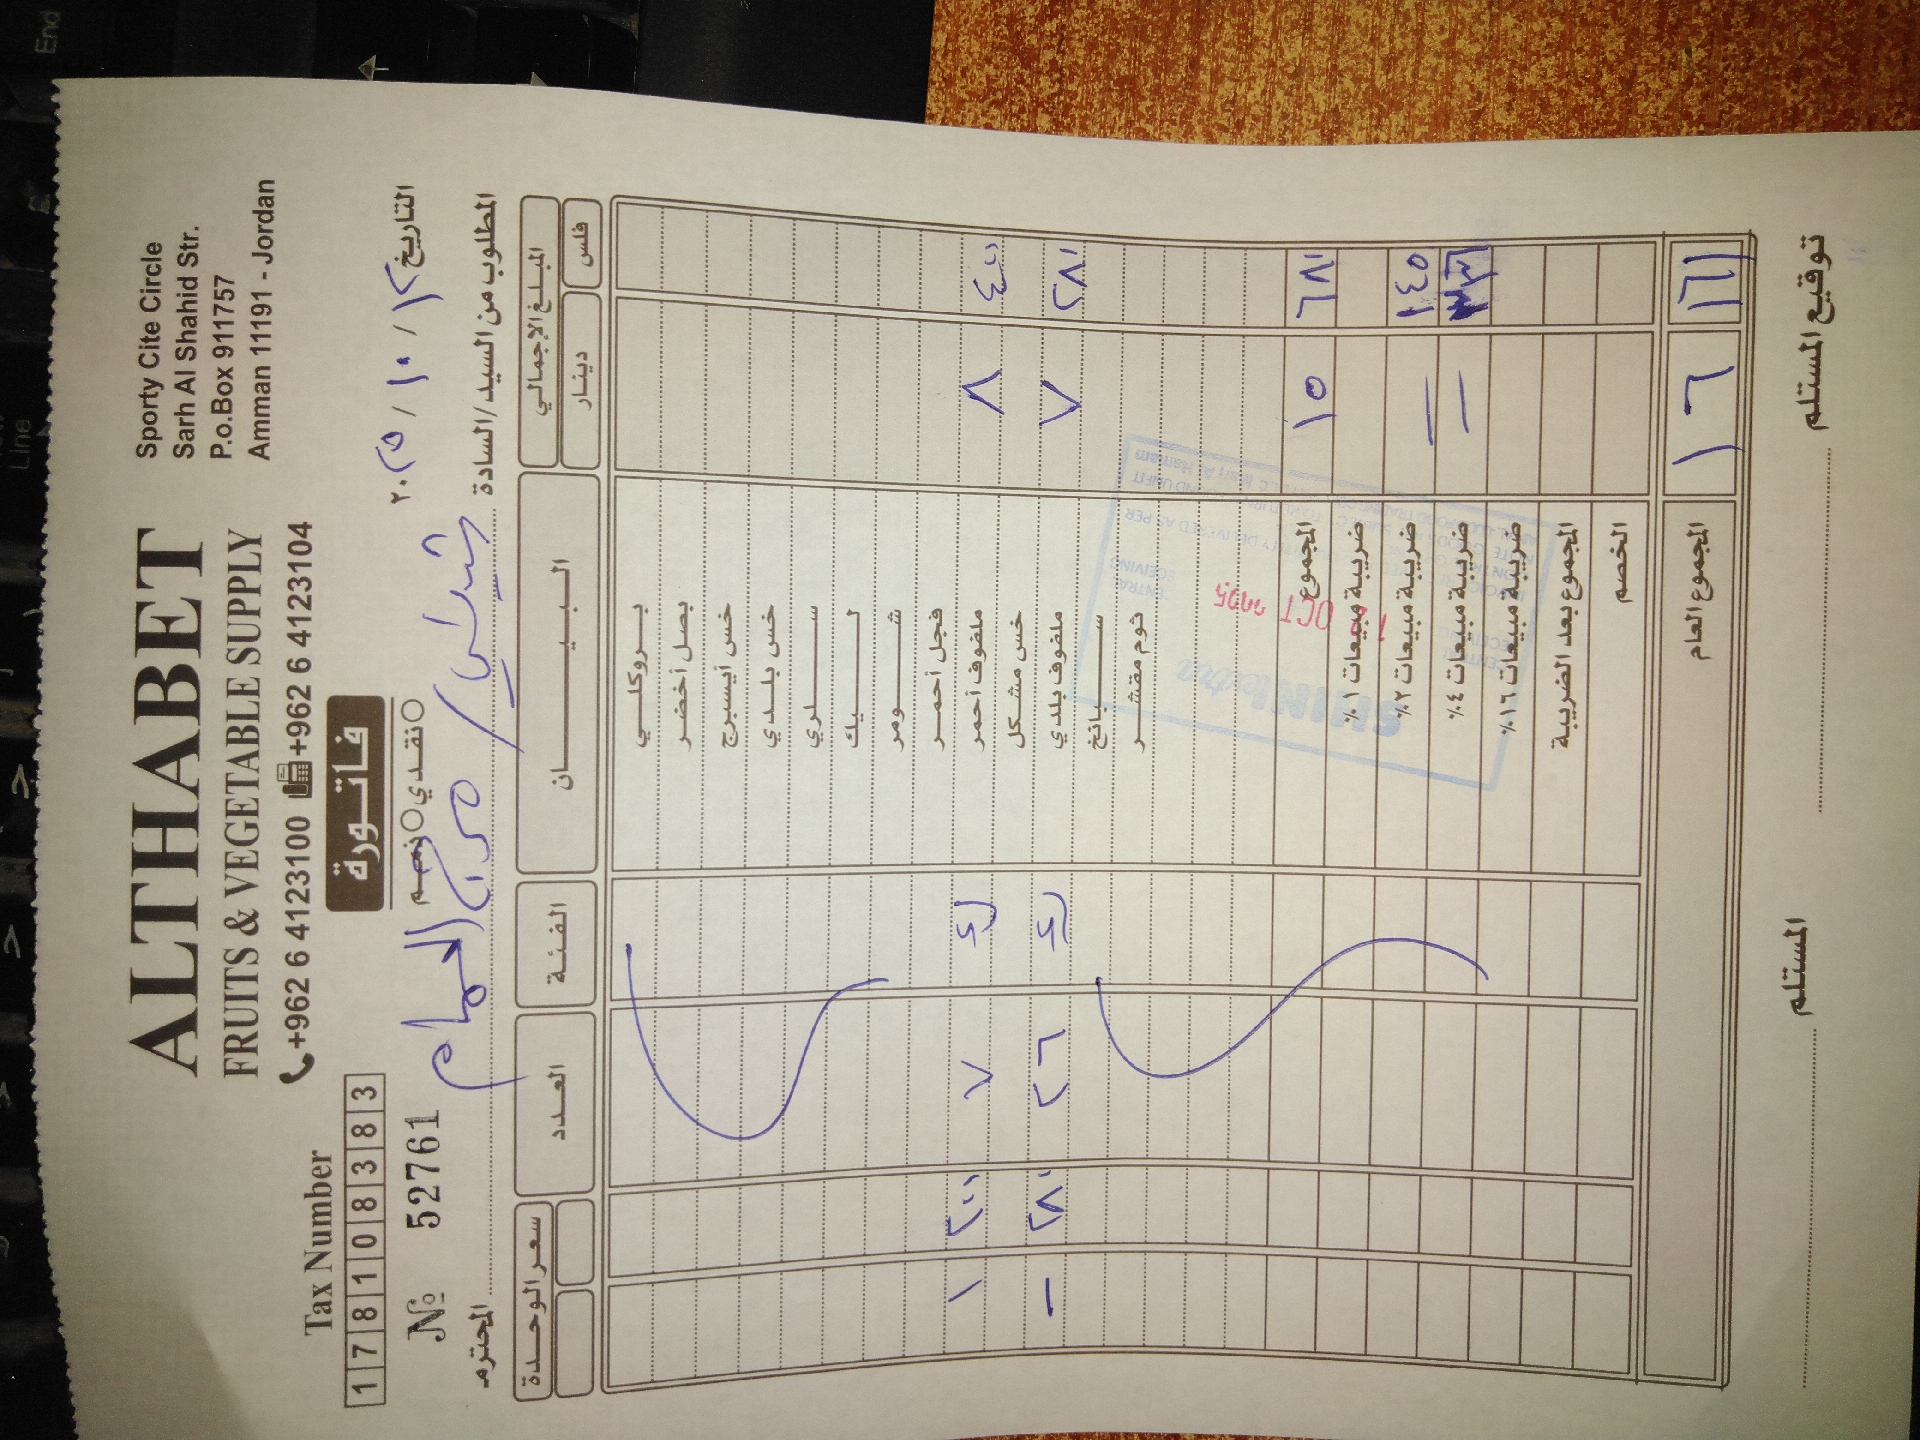 ALTHABET
FRUITS & VEGETABLE SUPPLY
+962 6 4123100 +962 6 4123104
Sporty Cite Circle
Sarh Al Shahid Str.
P.o.Box 911757
Amman 11191 - Jordan
Tax Number
178108383
№ 52761
فاتورة
نقدي ذمم
التاريخ ١٢ / ١٠ / ٢٠٢٥
المطلوب من السيد/السادة / مرج الحمام المحترم
المبلغ الاجمالي البيان الفئة العدد سعر الوحدة
فلس دينار
بروكلي
بصل أخضر
خس أيسبرج
خس بلدي
سلري
ليك
شومر
فجل أحمر
٤٠٠ ٨ ملفوف أحمر ٧ ٢٠٠ ١
خس مشكل
٢٨٠ ٧ ملفوف بلدي ٢٦ ٢٨٠ -
سبانخ
ثوم مقشر
٦٨٠ ١٥ المجموع
ضريبة مبيعات ١٪
١٤٥ ضريبة مبيعات ٢٪
ضريبة مبيعات ٤٪
ضريبة مبيعات ١٦٪
المجموع بعد الضريبة
الخصم
١٦١ ١٦ المجموع العام
توقيع المستلم
المستلم
OCT 2025
End
Line